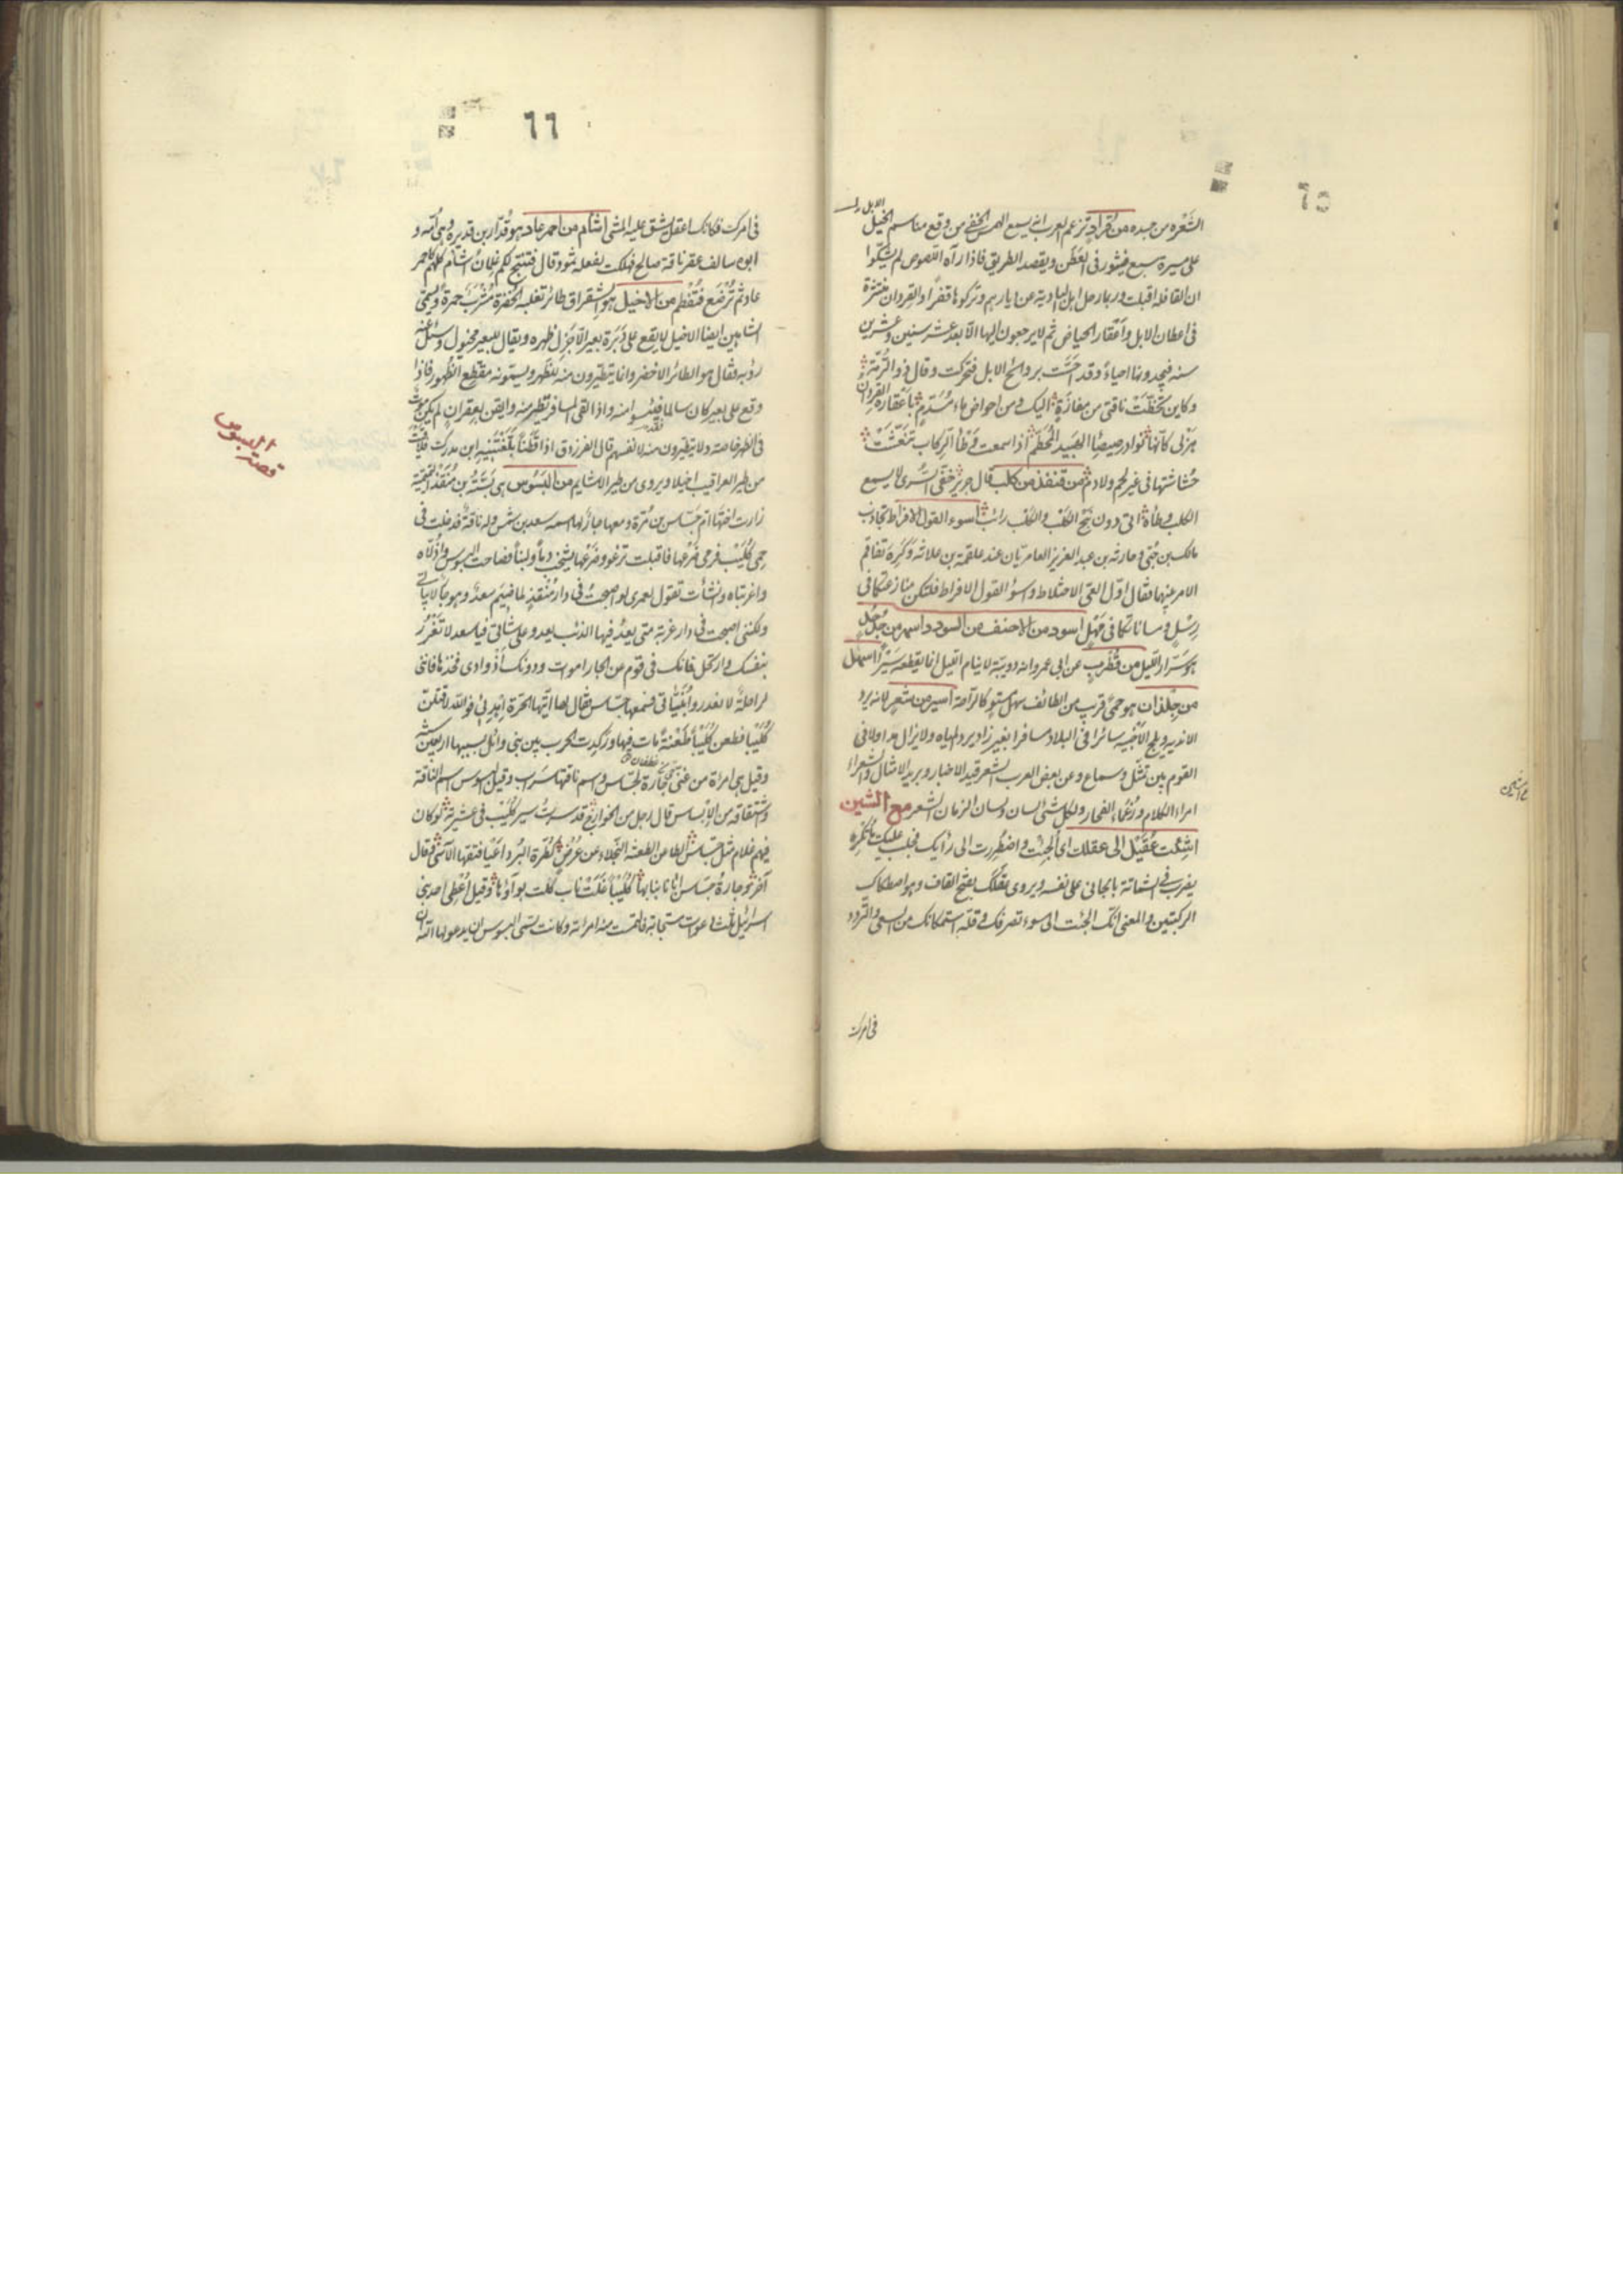 ٦٥
الابل
الشعره من جسده من قراد تزعم العرب انه يسمع الهمس الخفى من وقع مناسم الخيل
على مسيرة سبع فيثور فى العطن ويقصد الطريق فاذا رآه اللصوص لم يشكّوا
ان القافلة اقبلت وربما رحل اهل البادية عن ديارهم وتركوها قفرا والقردان منتشرة
فى اعطان الابل واعقار الحياض ثم لا يرجعون اليها الا بعد عشر سنين وعشرين
سنه فيجدونها احياء وقد احسّت بروائح الابل فتحركت وقال ذو الرمّة
وكاين تخطّت ناقتى من مفازة اليك ومن احواض ماء مسدّم باعقاره القردان
هزلى كانها نوادر صيصاء الهبيد المحطّم اذا سمعت وطأ الركاب تنغّشت
حشاشتها فى غير لحم ولا دم من قنفذ من كلب قال جرير خفىّ السّرى لا يسمع
الكلب وطأه اتى دون نبح الكلب والكلب رائب اسوء القول الافراط تجاذب
مالك بن حنى وحارثه بن عبد العزيز العامريّان عند علقمة بن علاثه وكره تفاقم
الامر بينهما فقال اوّل العىّ الاختلاط واسوأ القول الافراط فلتكن منازعتكما فى
رسل ومساناتكما فى مهل اسود من الاحنف من السودد اسهر من جدجد
هو صرّار الليل من قطرب عن ابى عمرو انه دويبّة لا ينام الليل انما يقطعه سيرا اسهل
من جلذان هو حمى قريب من الطائف سهل مستو كالراحة اسير من شعر لانه يرد
الاندية ويلج الاخبية سائرا فى البلاد مسافرا بغير زاد يرد المياه ولا يزال
القوم بين تمثّل وسماع وعن بعض العرب الشعر قيد الاخبار وبريد الامثال والشعراء
امراء الكلام وزعماء الفخار ولكل شئ لسان ولسان الزمان الشعر مع الشين
اشئت عقيل الى عقلك اى الجئت واضطررت الى رأيك فجلب عليك ما تكره
يضرب فى الشماتة بالجانى على نفسه ويروى بعقلك بفتح القاف وهو اصطكاك
الركبتين والمعنى انك الجئت الى سوء تصرفك وقلة استمكانك من السعى والتردد
فى امرك
٦٦
فى امرك فكانك اعقل يشق عليه المشى اشأم من احمر عاد هو قدار بن قديره وهى امّه و
ابوه سالف عقر ناقة صالح فهلكت بفعله ثمود قال فتنتج لكم غلمان اشأم كلهم كاحمر
عاد ثم ترضع فتفطم من الاخيل هو الشقراق طائر تغلبه الخضرة مشرب حمرة ويسمّى
الشاهين ايضا الاخيل لا يقع على دبرة بعير الا جزل ظهره ويقال للبعير مخيول وسئل عنه
رؤبه فقال هو الطائر الاخضر وانما يتطيرون منه للظهر ويسمّونه مقطع الظهور فاذا
وقع على بعير كان سالما فيئسوا منه واذا لقى المسافر تطير منه وايقن بعقر ان لم يكن موت
فى الظهر خاصة ولا يتطيرون منه لانفسهم قال الفرزدق اذا قطنا بلّغتنيه ابن مدرك فلاقيت
من طير العراقيب اخيلا ويروى من طير الاشايم من البسوس هى بسّة بن منقذ التميمية
زارت اختها ام جساس بن مرّة ومعها جار لها اسمه سعد بن شمس وله ناقة فدخلت فى
حمى كليب فرمى ضرعها فاقبلت ترغو وضرعها يشخب دما ولبنا فصاحت البسوس واذلّاه
واغربتاه وانشأت تقول لعمرى لو اصبحت فى دار منقذ لما ضيم سعد وهو جار لابياتى
ولكننى اصبحت فى دار غربة متى يعد فيها الذئب يعدو على شاتى فيا سعد لا تغرر
بنفسك وارتحل فانك فى قوم عن الجار اموات ودونك اذوادى فخذها فاننى
لراحلة لا تغدروا ببنيّاتى فسمعها جساس فقال لها ايتها الحرة اهدئى فوالله لاقتلن
كليبا فطعن كليبا طعنة مات فيها وركدت الحرب بين بنى وائل بسببها اربعين سنة
وقيل هى امراة من غنى جارة لجساس واسم ناقتها سراب وقيل البسوس اسم الناقة
واشتقاقه من الابساس قال رجل من الخوارج قد سرت سير كليب فى عشيرته لو كان
فيهم غلام مثل جساس الطاعن الطعنة النجلاء عن عرض كطرة البرد اعيا فتقها الآسى وقال
آخر وجارة جساس ابأنا بنابها كليبا غلت ناب كليب بواؤها وقيل اعطى احد بنى
اسرائيل ثلث دعوات مستجابة فالتمست منه امرأته وكانت تسمى البسوس ان يدعو لها الله ان
قصة البسوس